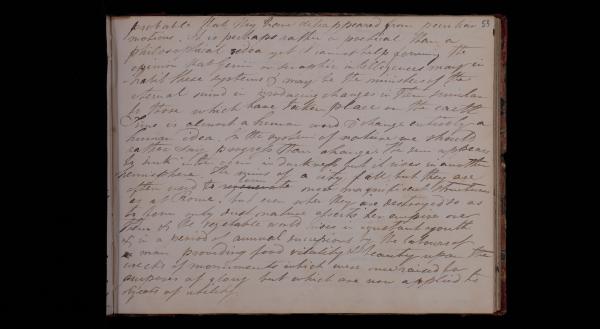 probable that they have disappeared from peculiar 53
motions. It is perhaps rather a poetical than a
philosophical idea yet I cannot help forming the
opinion that genii or seraphic intelligences may in
habit these systems & may be the ministers of the
eternal mind in producing changes in them similar
to those which have taken place on the earth
Time is almost a human word & change entirely a
human idea, in the system of nature we should
rather say progress than change. The sun appears
to sink in the ocean in darkness but it rises in another
hemisphere. The ruins of a city fall but they are
often used to more magnificent structures
as at Rome. but even when they are destroyed so as
to form only dust, nature asserts her empire over
them & the vegetable world rises in constant youth
& in a period of annual successions by the labours of
man providing food vitality & beauty upon the
wrecks of monuments which were once raised for
purposes of glory but which are now applied to
objects of utility.